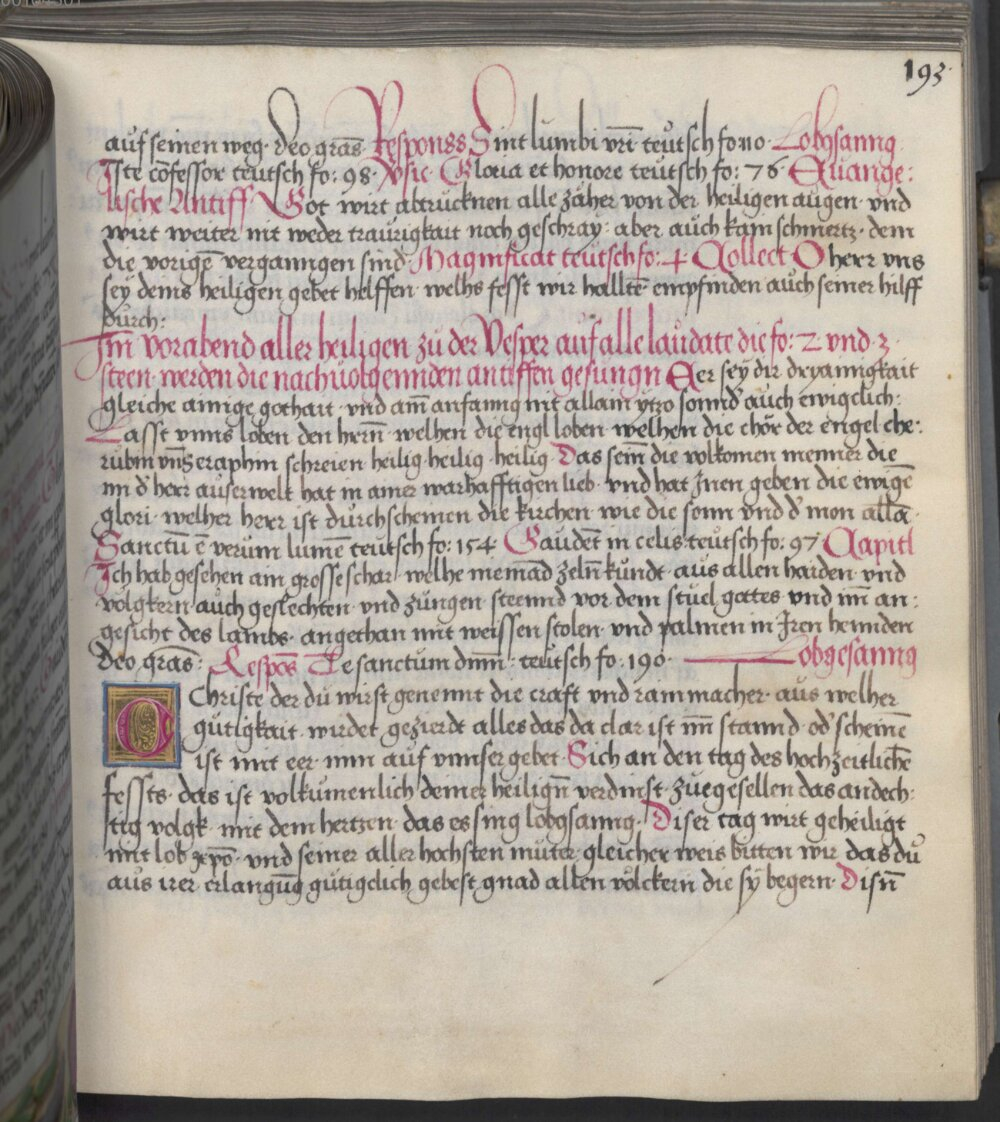 193
auf seinen weg · deo grãs Responss Sint lumbi vrĩ teutsch fo 110 · Lobgsanng
Iste cõfessor teutsch fo: 98 · Vsic · Gloria et honore teutsch fo: 76 · Euange:
lische Antiff · Got wirt abtrucknen alle zäher von der heiligen augen · vnd
wirt weiter nit weder traurigkait noch geschray: aber auch kain schmertz · dem
die vorigẽ verganngen sind · Magnificat teutsch fo: 4 · Collect O herr vns
sey deins heiligen gebet helffen · welhs fesst wir halltẽ empfinden auch seiner hilff
durch:
Im vorabend aller heiligen zu der Vesper auf alle laudate die fo: 2 · vnd · 3 ·
steen · werden die nachuolgennden antiffen gesungn Eer sey dir dryainigkait
gleiche ainige gothait · vnd am̃ anfanng nit allain ytzo sonnd' auch ewigclich:
Lasst vnns loben den hrrñ · welhen die engl loben · welhen die chör der engel che:
rubin vñ Seraphin schreien heilig · heilig · heilig · Das sein die volkomen menner die
im d' herr auserwelt hat in ainer warhafftigen lieb · vnd hat Inen geben die ewigẽ
glori · welher herr ist durchscheinen die kirchen wie die sonn vnd d' mon alla ·
Sanctũ ẽ verum lumẽ teutsch fo: 154 · Gaudẽt in celis teutsch fo: 97 · Capitl
Ich hab gesehen ain grosse schar · welhe niemãd zeln kundt · aus allen haiden · vnd
volgkern · auch geslechten · vnd zungen · steennd vor dem stuel gotes vnd im an:
gesicht des lambs · angethan mit weissen stolen · vnd palmen in Iren hennden
deo grãs: Respõs Te sanctum dnm̃: teutsch fo: 190 · Lobgesanng
O Christe der du wirst genennt die craft vnd rainmacher · aus welher
gütigkait · wirdet gezierdt alles das da clar ist im̃ stannd · od' scheinẽ
ist mit eer · nim auf vnnser gebet · Sich an den tag des hochzeitlichẽ
fessts · das ist volkumenlich deiner heilign̄ verdinst · zuegesellen das andech:
tig volgk · mit dem hertzen · das es sing lobgsanng · Diser tag wirt geheiligt
mit lob xp̃o · vnd seiner aller hochsten muter · gleicher weis bitten wir das du
aus irer erlangũg gütigclich gebest gnad allen völckern die sy begern · Disñ